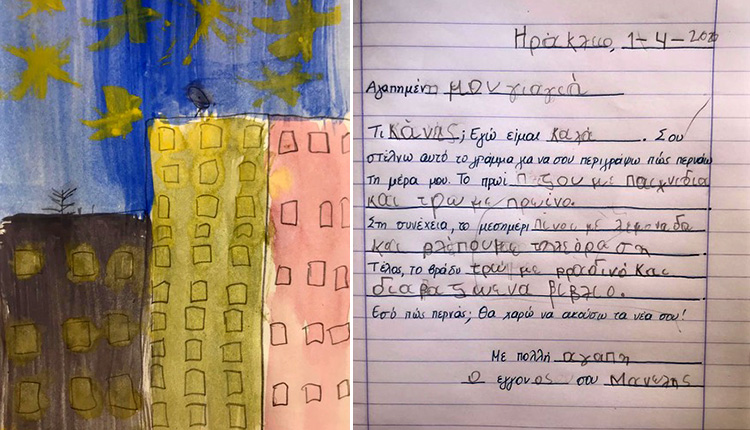 Ηράκλειο, 1-4-2020
Αγαπημένη μου γιαγιά
Τι κάνης; Εγώ είμαι καλά. Σου
στέλνω αυτό το γράμμα για να σου περιγράψω πώς περνάω
τη μέρα μου. Το πρωί πέζουμε παιχνίδια
και τρώμε πρωινο.
Στη συνέχεια, το μεσημέρι
και βλέπουμε τηλεόραση
Τέλος, το βράδυ τρώμε βραδινό και
διαβαζωενα βιβλιο.
Εσύ πώς περνάς; Θα χαρώ να ακούσω τα νέα σου!
Με πολλή αγαπη
Ο εγγονος σου Μανεληs